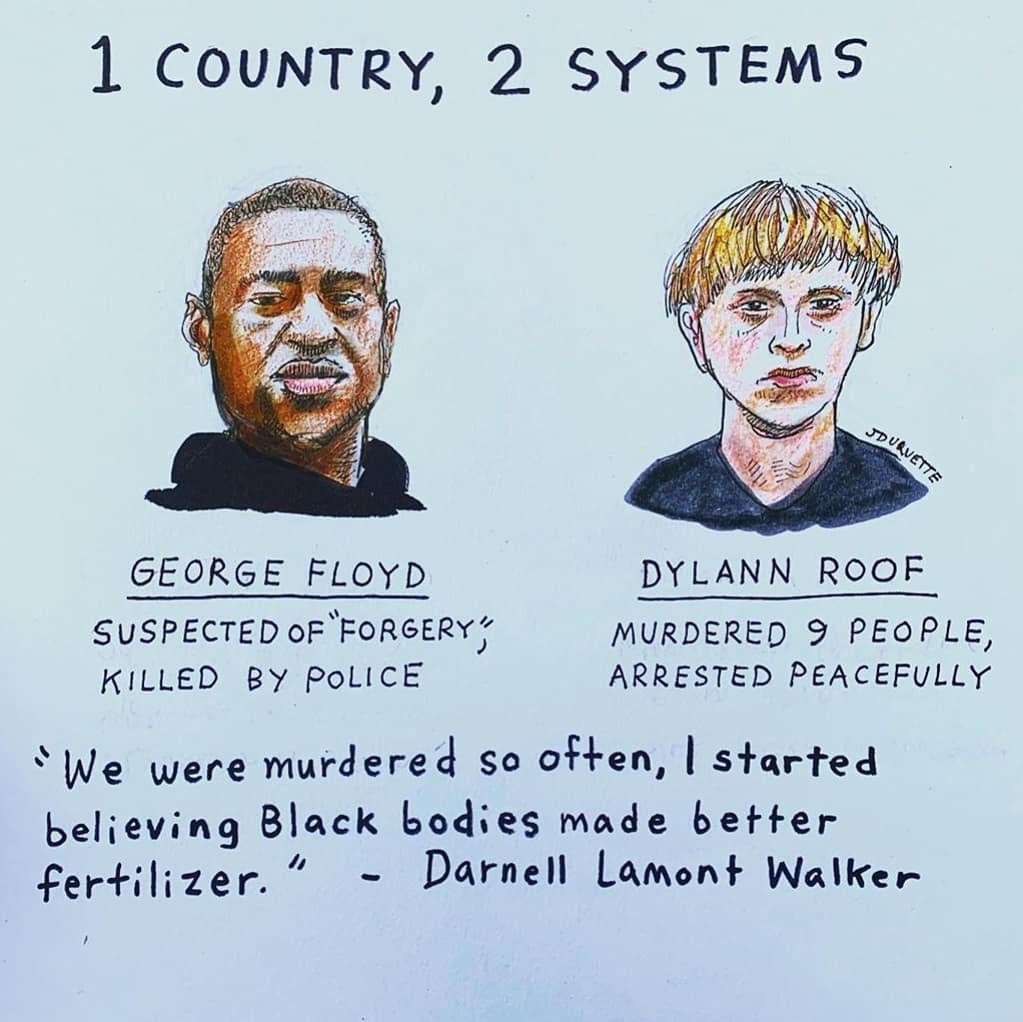 1 COUNTRY, 2 SYSTEMS
JDURVETTE
GEORGE FLOYD
SUSPECTED OF "FORGERY",
KILLED BY POLICE
DYLANN ROOF
MURDERED 9 PEOPLE,
ARRESTED PEACEFULLY
"We were murdered so often, I started
believing Black bodies made better
fertilizer." - Darnell Lamont Walker